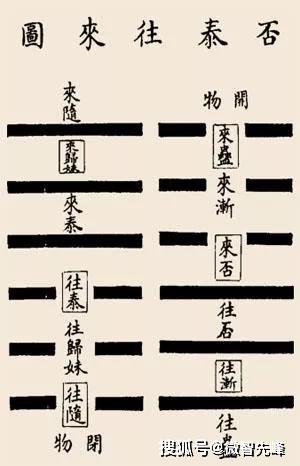 否泰往來圖
開物
來蠱
來漸
來否
往否
往漸
往蠱
來隨
來歸妹
來泰
往泰
往歸妹
往隨
閉物
搜狐号@微智先峰